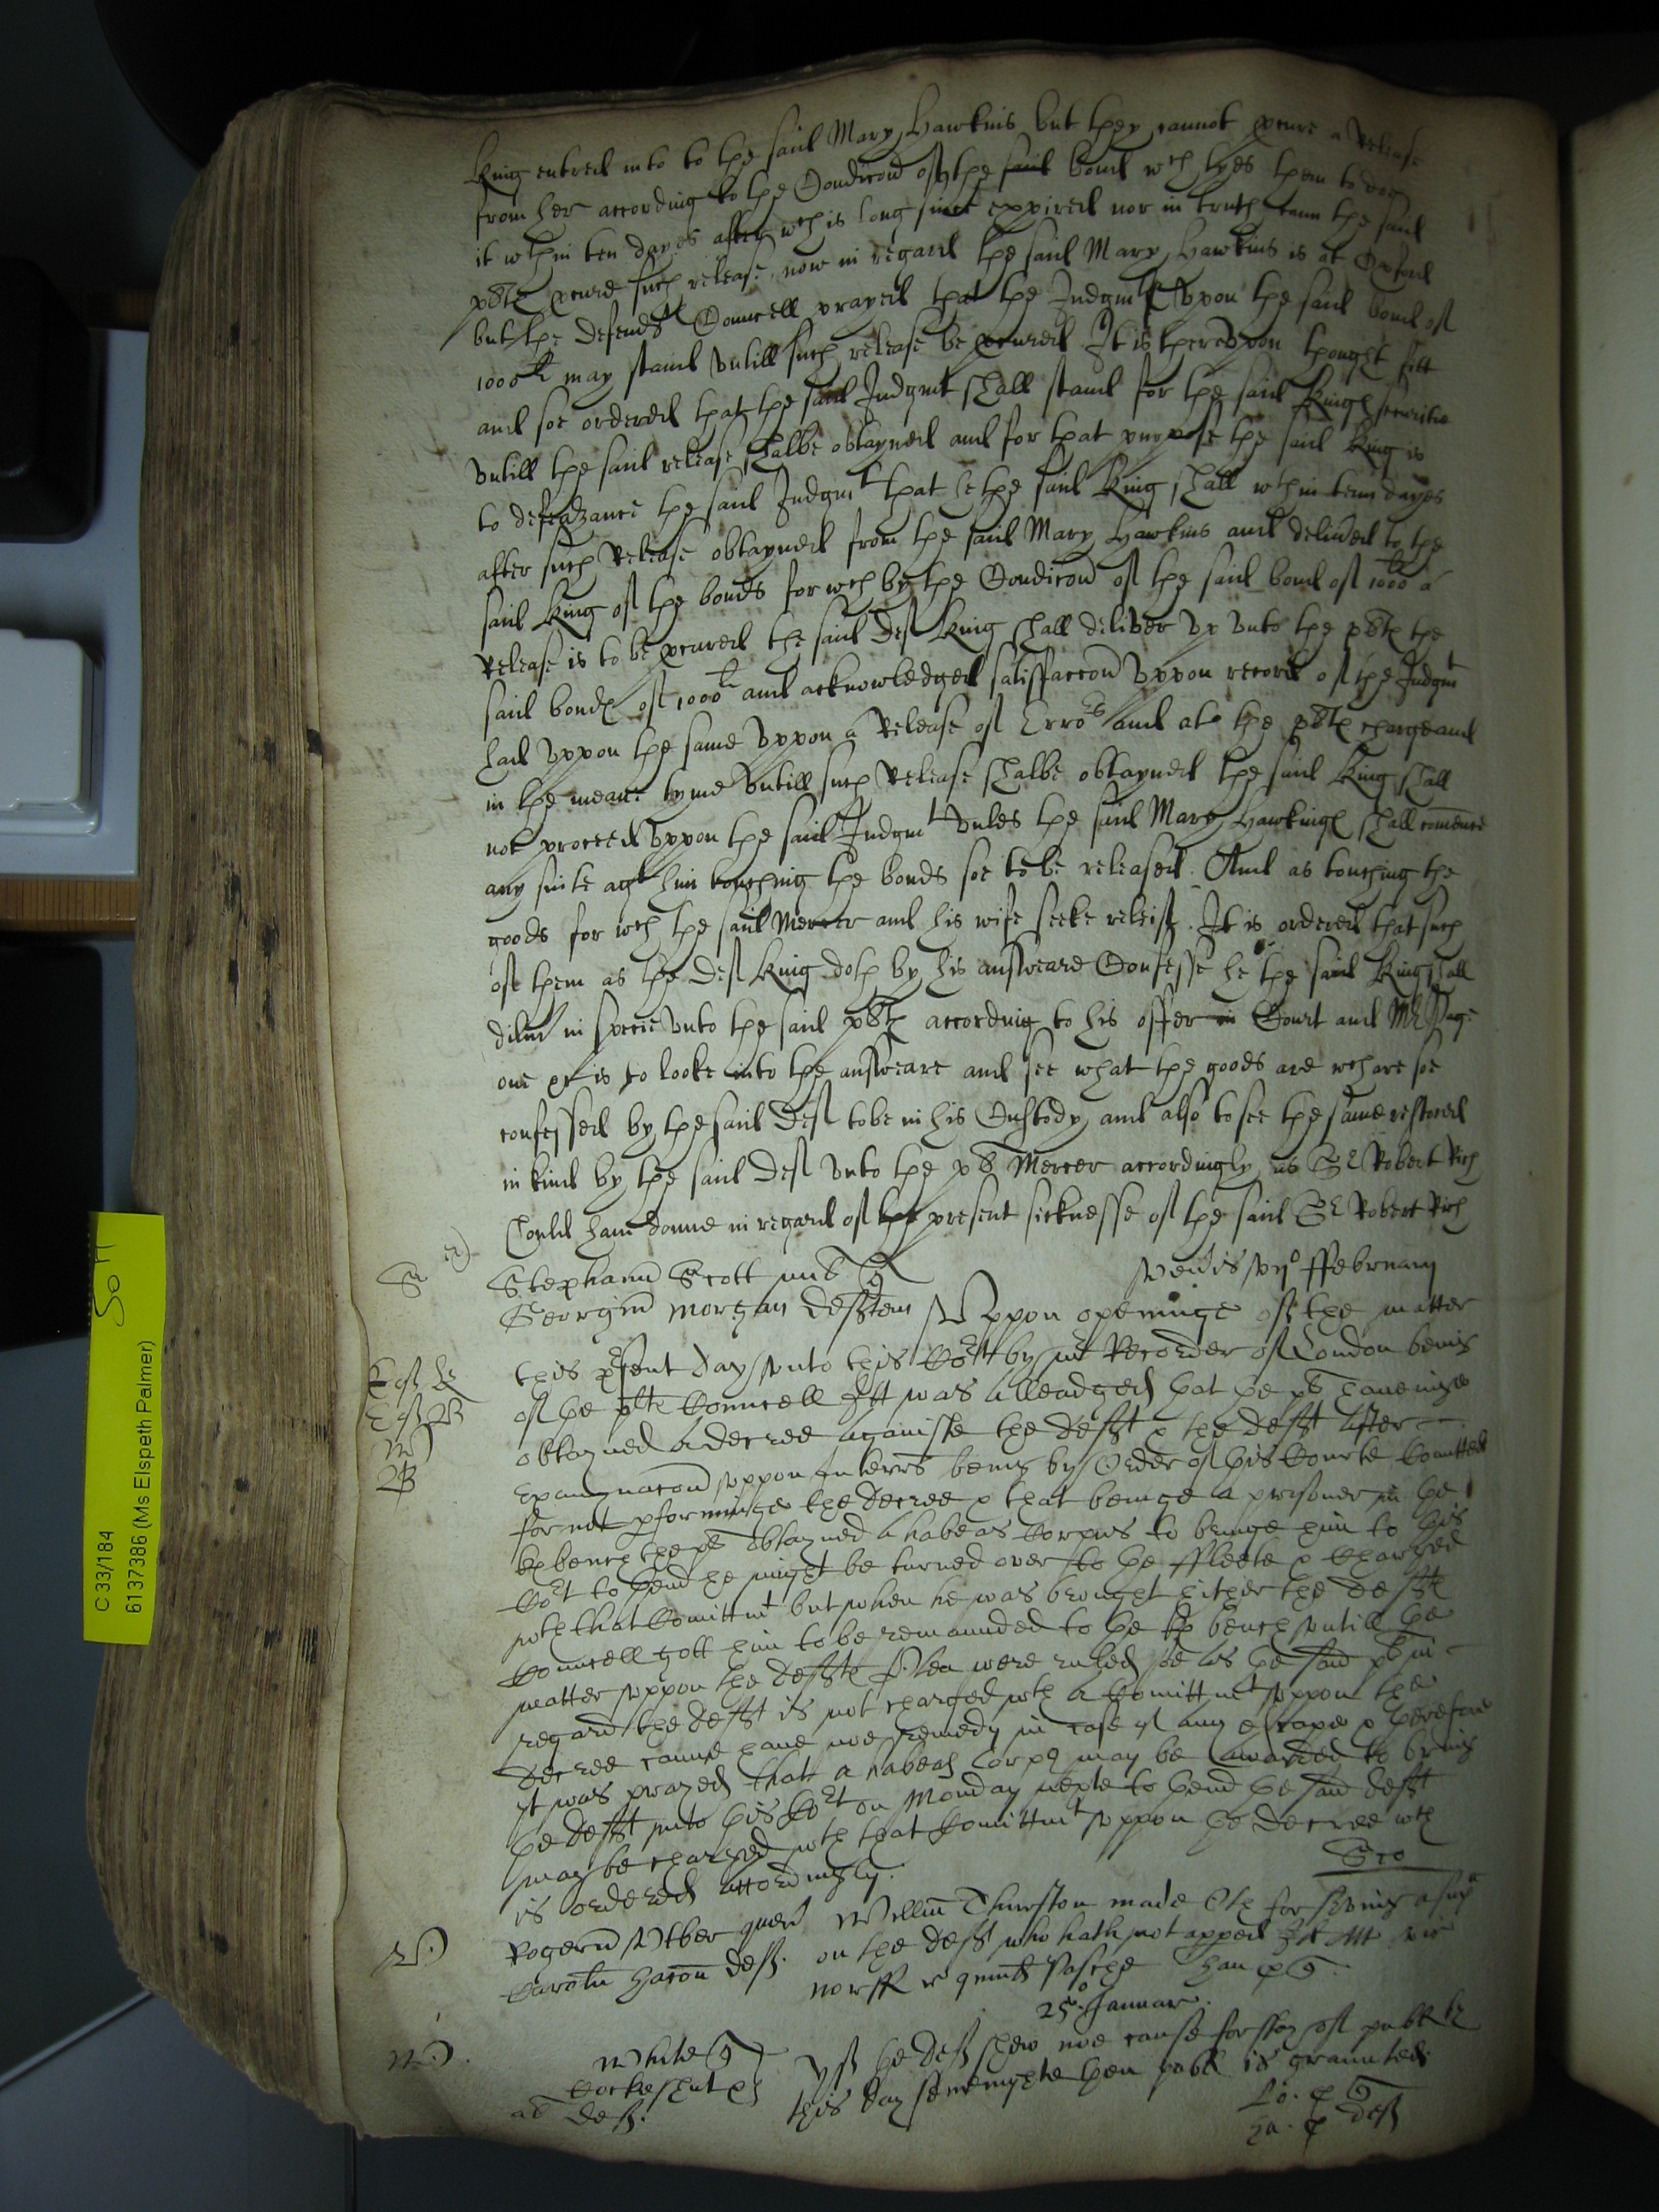 King entred into to the said Mary Hawkins but they cannot pcure a Release
from her according to the Condicon of the said bond wch tyes them to doe
it wthin ten dayes after wch is long since expired nor in truth cann the said
plts pcure such release now in regard the said Mary Hawkins is at Oxford
but the defendts Councell prayed that the Judgmt vppon the said bond of
1000li may stand vntill such release be pcured It is therevpon thought fitt
and soe ordered that the said Judgmt shall stand for the said Kings securitie
vntill the said release shalbe obtayned and for that purpose the said King is
to defeazance the said Judgmt that he the said King shall wthin tenn dayes
after such Release obtayned from the said Mary Hawkins and deliued to the
said King of the bonds for wch by the Condicon of the said bond of 1000li a
Release is to be pcured the said Deft King shall deliver vp vnto the plts the
said bonds of 1000li and acknowledged satisfaccon vppon record of the Judgmt
had vppon the same vppon a Release of Errors and at the plts charge and
in the meane tyme vntill such Release shalbe obtayned the said King shall
not proceed vppon the said Judgmt vnles the said Mary Hawkings shall comence
any suite agt him touching the bonds soe to be released. And as touching the
goods for wch the said Mercer and his wife seeke releif. It is ordered that such
of them as the Deft King doth by his answeare Confesse he the said King shall
diliu in specie vnto the said plts according to his offer in Court and Mr Page
one is to looke into the answeare and see what the goods are wch are soe
confessed by the said Deft to be in his Custody and also to see the same restored
in kind by the said Deft vnto the plt Mercer accordingly as Sr Robert Rich
should haue donne in regard of the present sicknesse of the said Sr Robert Rich
Stephanu Scott
Georgiu Morgan defften
ffebruary
Vppon openinge of the matter
this psent day vnto this Cort by mr Recorder of London being
of the plts Councell Itt was alleadged that the plt haueinge
obtayned a decree againste the defft & the defft after
Examynacon vppon Interrs being by Order of this Courte Comitted
for not pforminge the decree & that beinge a prisoner in the
Kp bench the plt obtayned a habeas Corpus to bringe him to this
Cort to thend he might be turned over to the ffleete & charged
wth that Comittmt but when he was brought hither the deffts
Councell gott him to be remaunded to the Kp bench vntill the
matter vppon the deffts Plea were ruled soe as the said plt in
regard the defft is not charged wth a Comittmt vppon the
decree cannot haue noe remedy in case of any escape & therefore
it was prayed that a habeas Corps may be awarded to bring
the defft into this Cort on Monday nexte to thend the said defft
may be charged wth that Comittmt vppon the decree wch
is ordered accordingly.
Sco
Rogeru quer Willm Thurston made Oth for serving a
deft. on the deft who hath not apped
Norff r quind Pasche
25o Januar.
White
ad deft.
Yf the deft shew noe cause for stay of publ
this day sevenighte then publ is graunted